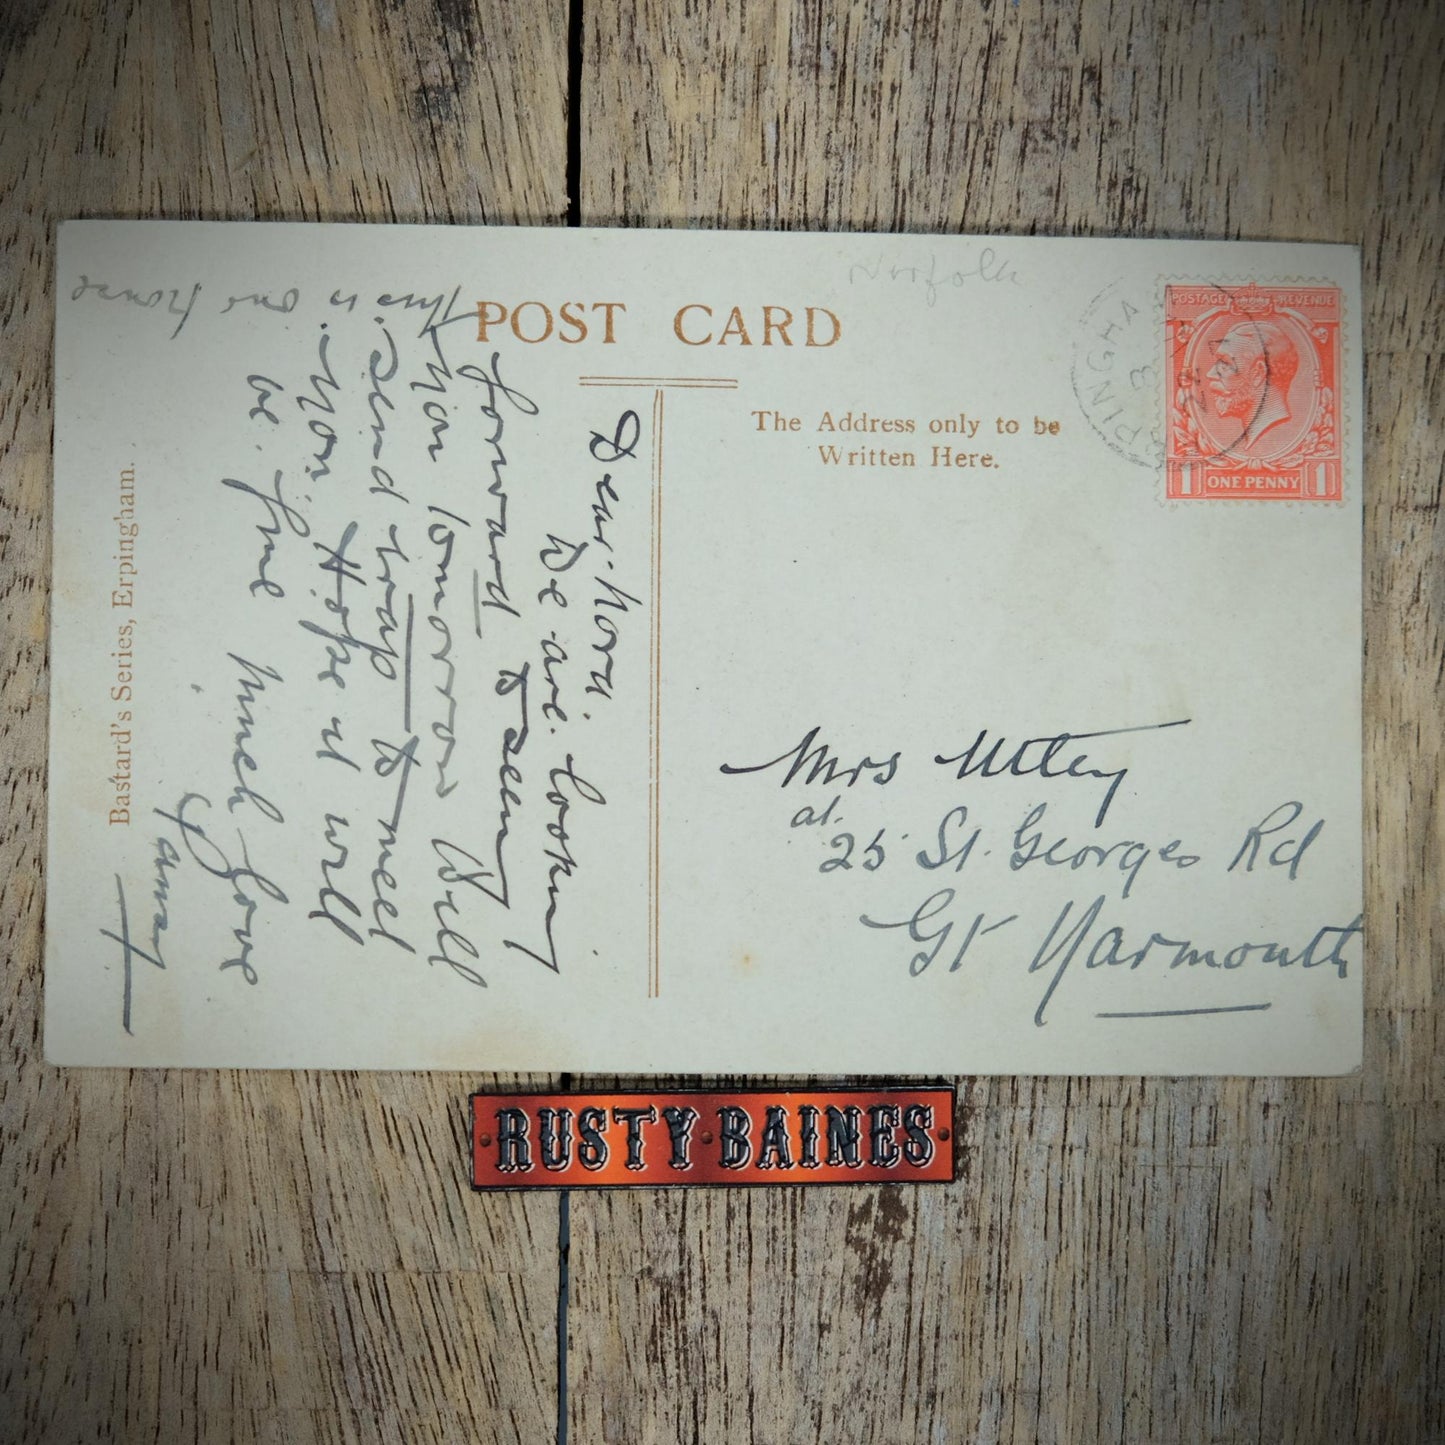 Norfolk
POST CARD
The Address only to be
Written Here.
POSTAGE REVENUE
1 ONE PENNY 1
ERPINGHAM
22
This is our house
Dear Nora.
We are looking
forward to seeing
you tomorrow Will
send trap to meet
you. Hope it will
be fine Much Love
Bastard's Series, Erpingham.
Mrs Utley
at.
25 St. Georges Rd
Gt Yarmouth
RUSTY·BAINES